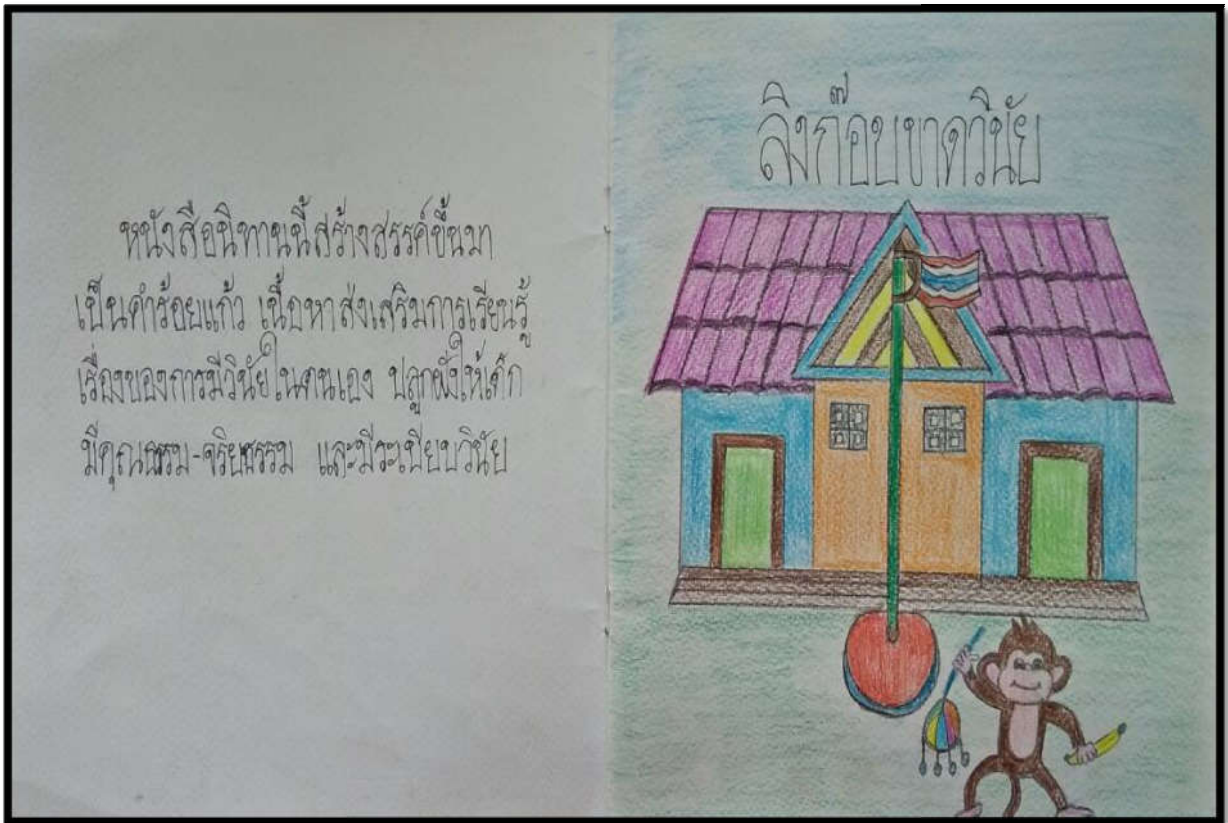 หนังสือนิทานนี้สร้างสรรค์ขึ้นมา
เป็นคำร้อยแก้ว เนื้อหาส่งเสริมการเรียนรู้
เรื่องของการมีวินัยในตนเอง ปลูกฝังให้เด็ก
มีคุณธรรม-จริยธรรม และมีระเบียบวินัย
ลิงก๊อบขาดวินัย